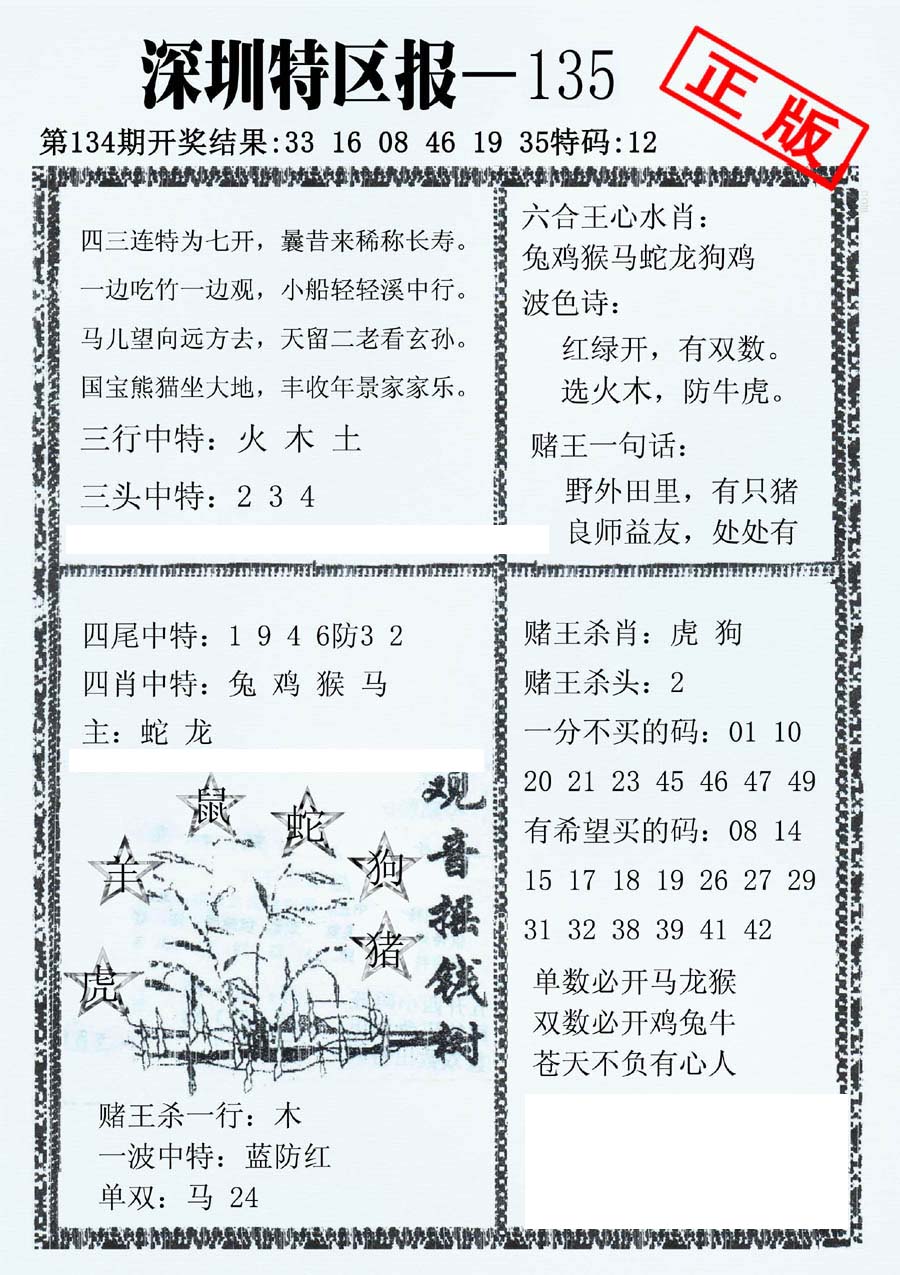 深圳特区报—135
正版
第134期开奖结果:33 16 08 46 19 35特码:12
四三连特为七开，曩昔来稀称长寿。
一边吃竹一边观，小船轻轻溪中行。
马儿望向远方去，天留二老看玄孙。
国宝熊猫坐大地，丰收年景家家乐。
三行中特：火 木 土
三头中特：2 3 4
六合王心水肖：
兔鸡猴马蛇龙狗鸡
波色诗：
红绿开，有双数。
选火木，防牛虎。
赌王一句话：
野外田里，有只猪
良师益友，处处有
四尾中特：1 9 4 6防3 2
四肖中特：兔 鸡 猴 马
主：蛇 龙
鼠
蛇
羊
狗
猪
虎
观音摇钱树
赌王杀一行：木
一波中特：蓝防红
单双：马 24
赌王杀肖：虎 狗
赌王杀头：2
一分不买的码：01 10
20 21 23 45 46 47 49
有希望买的码：08 14
15 17 18 19 26 27 29
31 32 38 39 41 42
单数必开马龙猴
双数必开鸡兔牛
苍天不负有心人